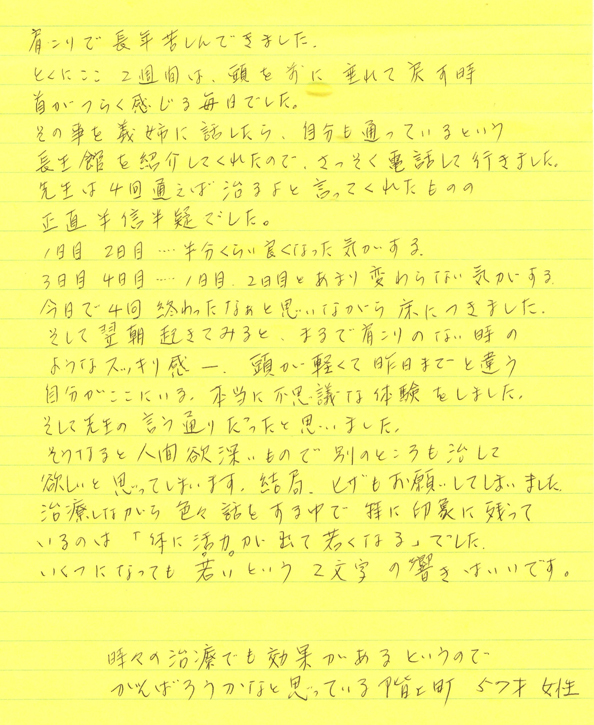 肩こりで長年苦しんできました.
とくにここ 2週間は、頭を前に垂れて戻す時
首がつらく感じる毎日でした。
その事を義姉に話したら、自分も通っているという
長生館を紹介してくれたので、さっそく電話して行きました.
先生は4回通えば治るよと言ってくれたものの
正直半信半疑でした。
1日目 2日目 ‥‥ 半分くらい良くなった気がする.
3日目 4日目 ‥‥ 1日目、2日目とあまり変わらない気がする.
今日で4回 終わったなぁと思いながら 床につきました.
そして翌朝 起きてみると、まるで肩こりのない時の
ようなスッキリ感ー. 頭が軽くて昨日までと違う
自分がここにいる. 本当に不思議な体験をしました.
そして先生の言う通りだったと思いました.
そうなると人間欲深いもので 別のところも治して
欲しいと思ってしまいます. 結局、ヒザもお願いしてしまいました.
治療しながら 色々話をする中で 特に印象に残って
いるのは「体に活力が出て若くなる」でした.
いくつになっても 若いという 2文字 の響きはいいです。
時々の治療でも効果があるというので
がんばろうかなと思っている 階上町 57才 女性